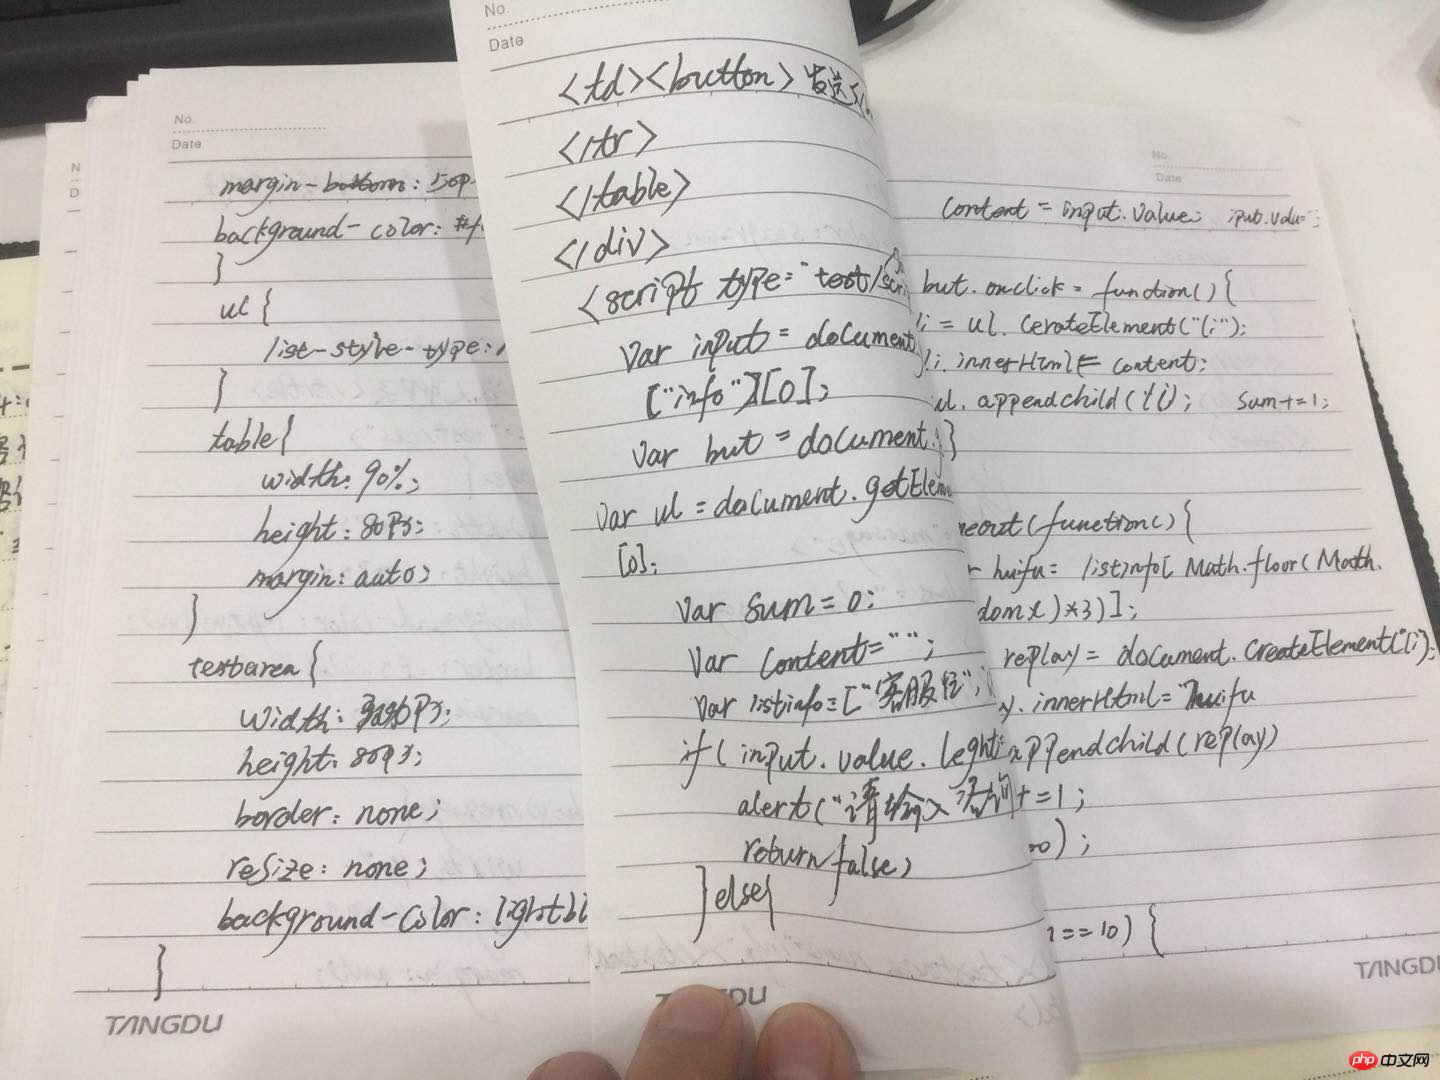 No.
Date
margin-bottom: 150p
background-color: #f
}
ul {
list-style-type:
}
table{
width: 90%;
height: 80px;
margin: auto;
}
textarea {
width:
height: 80px;
border: none;
resize: none;
background-color: lightbl
}
TANGDU
No.
Date
<td><button>发送
</tr>
</table>
</div>
<script type="text/scri
Var input = document
["info"][0];
Var but = document.
Var ul = document.getElem
[0];
Var sum = 0;
Var content="";
Var listinfo=["客服忙",
if( input.value.leght
alert("请输入
return false;
}else{
DU
No.
Date
content = input.value; iput.value
but.onclick = function(){
li = ul.cerateElement("li");
li.innerHtml = content;
ul.appendchild(li); Sum+=1;
}
eout(function(){
r huifu= listinfo[Math.floor(Math.
dom()*3)];
replay = document.createElement("li");
y.innerHtml= huifu
ppendchild(replay)
+=1;
00);
==10) {
TANGDU
php 中文网